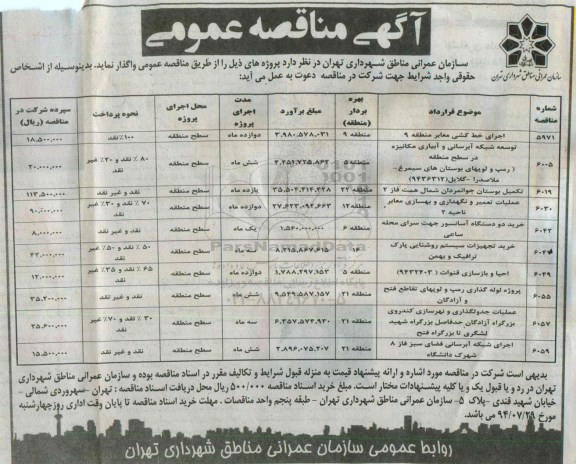 آگهی مناقصه عمومی
سازمان عمرانی مناطق شهرداری تهران
سازمان عمرانی مناطق شهرداری تهران در نظر دارد پروژه های ذیل را از طریق مناقصه عمومی واگذار نماید. بدینوسیله از اشخاص
حقوقی واجد شرایط جهت شرکت در مناقصه دعوت به عمل می آید:
شماره مناقصه | موضوع قرارداد | بهره بردار (منطقه) | مبلغ برآورد | مدت اجرای پروژه | محل اجرای پروژه | نحوه پرداخت | سپرده شرکت در مناقصه (ریال)
۵۹۷۱ | اجرای خط کشی معابر منطقه ۹ | منطقه ۹ | ۳,۹۸۰,۵۷۸,۰۳۱ | دوازده ماه | سطح منطقه | ۱۰۰٪ نقد | ۱۸,۵۰۰,۰۰۰
۶۰۰۵ | توسعه شبکه آبرسانی و آبیاری مکانیزه در سطح منطقه ( رمپ و لوپهای بوستان های سیمرغ- ملاصدرا -گلایل(۹۴۲۶۳۱۲ | منطقه ۵ | شش ماه | سطح منطقه | ۸۰ ٪ نقد و ۲۰٪ غیر نقد | ۲۰,۰۰۰,۰۰۰
۶۰۱۹ | تکمیل بوستان جوانمردان شمال همت فاز ۲ | منطقه ۲۲ | یازده ماه | سطح منطقه | نقد و غیر نقد | ۱۱۳,۵۰۰,۰۰۰
۶۰۳۰ | عملیات تعمیر و نگهداری و بهسازی معابر ناحیه ۲ | منطقه ۱۲ | دوازده ماه | سطح منطقه | ۷۰ ٪ نقد و ۳۰٪ غیر نقد | ۹۰,۰۰۰,۰۰۰
۶۰۴۲ | خرید دو دستگاه آسانسور جهت سرای محله ساعی | منطقه ۶ | ۱,۵۶۰,۰۰۰,۰۰۰ | یک ماه | سطح منطقه | نقد و غیر نقد | ۸,۰۰۰,۰۰۰
خرید تجهیزات سیستم روشنایی پارک ترافیک و بهمن | سه ماه | سطح منطقه | ۵۰ ٪ نقد و ۵۰٪ غیر نقد
۶۰۴۹ | احیا و بازسازی قنوات ( ۹۴۲۲۴۰۳) | منطقه ۵ | ۱,۷۸۸,۴۹۷,۱۵۳ | دوازده ماه | سطح منطقه | ۶۵ ٪ نقد و ۳۵٪ غیر نقد | ۱۲,۰۰۰,۰۰۰
۶۰۵۵ | پروژه لوله گذاری رمپ و لوپهای تقاطع فتح و آزادگان | منطقه ۲۱ | ۹,۵۴۹,۵۸۷,۱۵۷ | شش ماه | سطح منطقه | نقد و غیر نقد | ۳۵,۲۰۰,۰۰۰
۶۰۵۷ | عملیات جدولگذاری و نهرسازی کندروی بزرگراه آزادگان حدفاصل بزرگراه شهید لشگری تا بزرگراه فتح | منطقه ۲۱ | ۶,۳۵۷,۵۷۴,۹۳۰ | سه ماه | سطح منطقه | ۳۰ ٪ نقد و ۷۰٪ غیر نقد | ۲۵,۶۰۰,۰۰۰
۶۰۵۹ | اجرای شبکه آبرسانی فضای سبز فاز ۸ شهرک دانشگاه | منطقه ۲۱ | ۲,۸۹۶,۰۷۵,۲۰۷ | شش ماه | سطح منطقه | نقد و غیر نقد | ۱۵,۵۰۰,۰۰۰
بدیهی است شرکت در مناقصه مورد اشاره و ارائه پیشنهاد قیمت به منزله قبول شرایط و تکالیف مقرر در اسناد مناقصه بوده و سازمان عمرانی مناطق شهرداری
تهران در رد و یا قبول یک و یا کلیه پیشنهادات مختار است. مبلغ خرید اسناد مناقصه ۵۰۰/۰۰۰ ریال محل دریافت اسناد مناقصه : تهران -سهروردی شمالی -
خیابان شهید قندی -پلاک ۵- سازمان عمرانی مناطق شهرداری تهران - طبقه پنجم واحد مناقصات . مهلت خرید اسناد مناقصه تا پایان وقت اداری روز چهارشنبه
مورخ ۹۴/۰۷/۲۹ می باشد.
روابط عمومی سازمان عمرانی مناطق شهرداری تهران